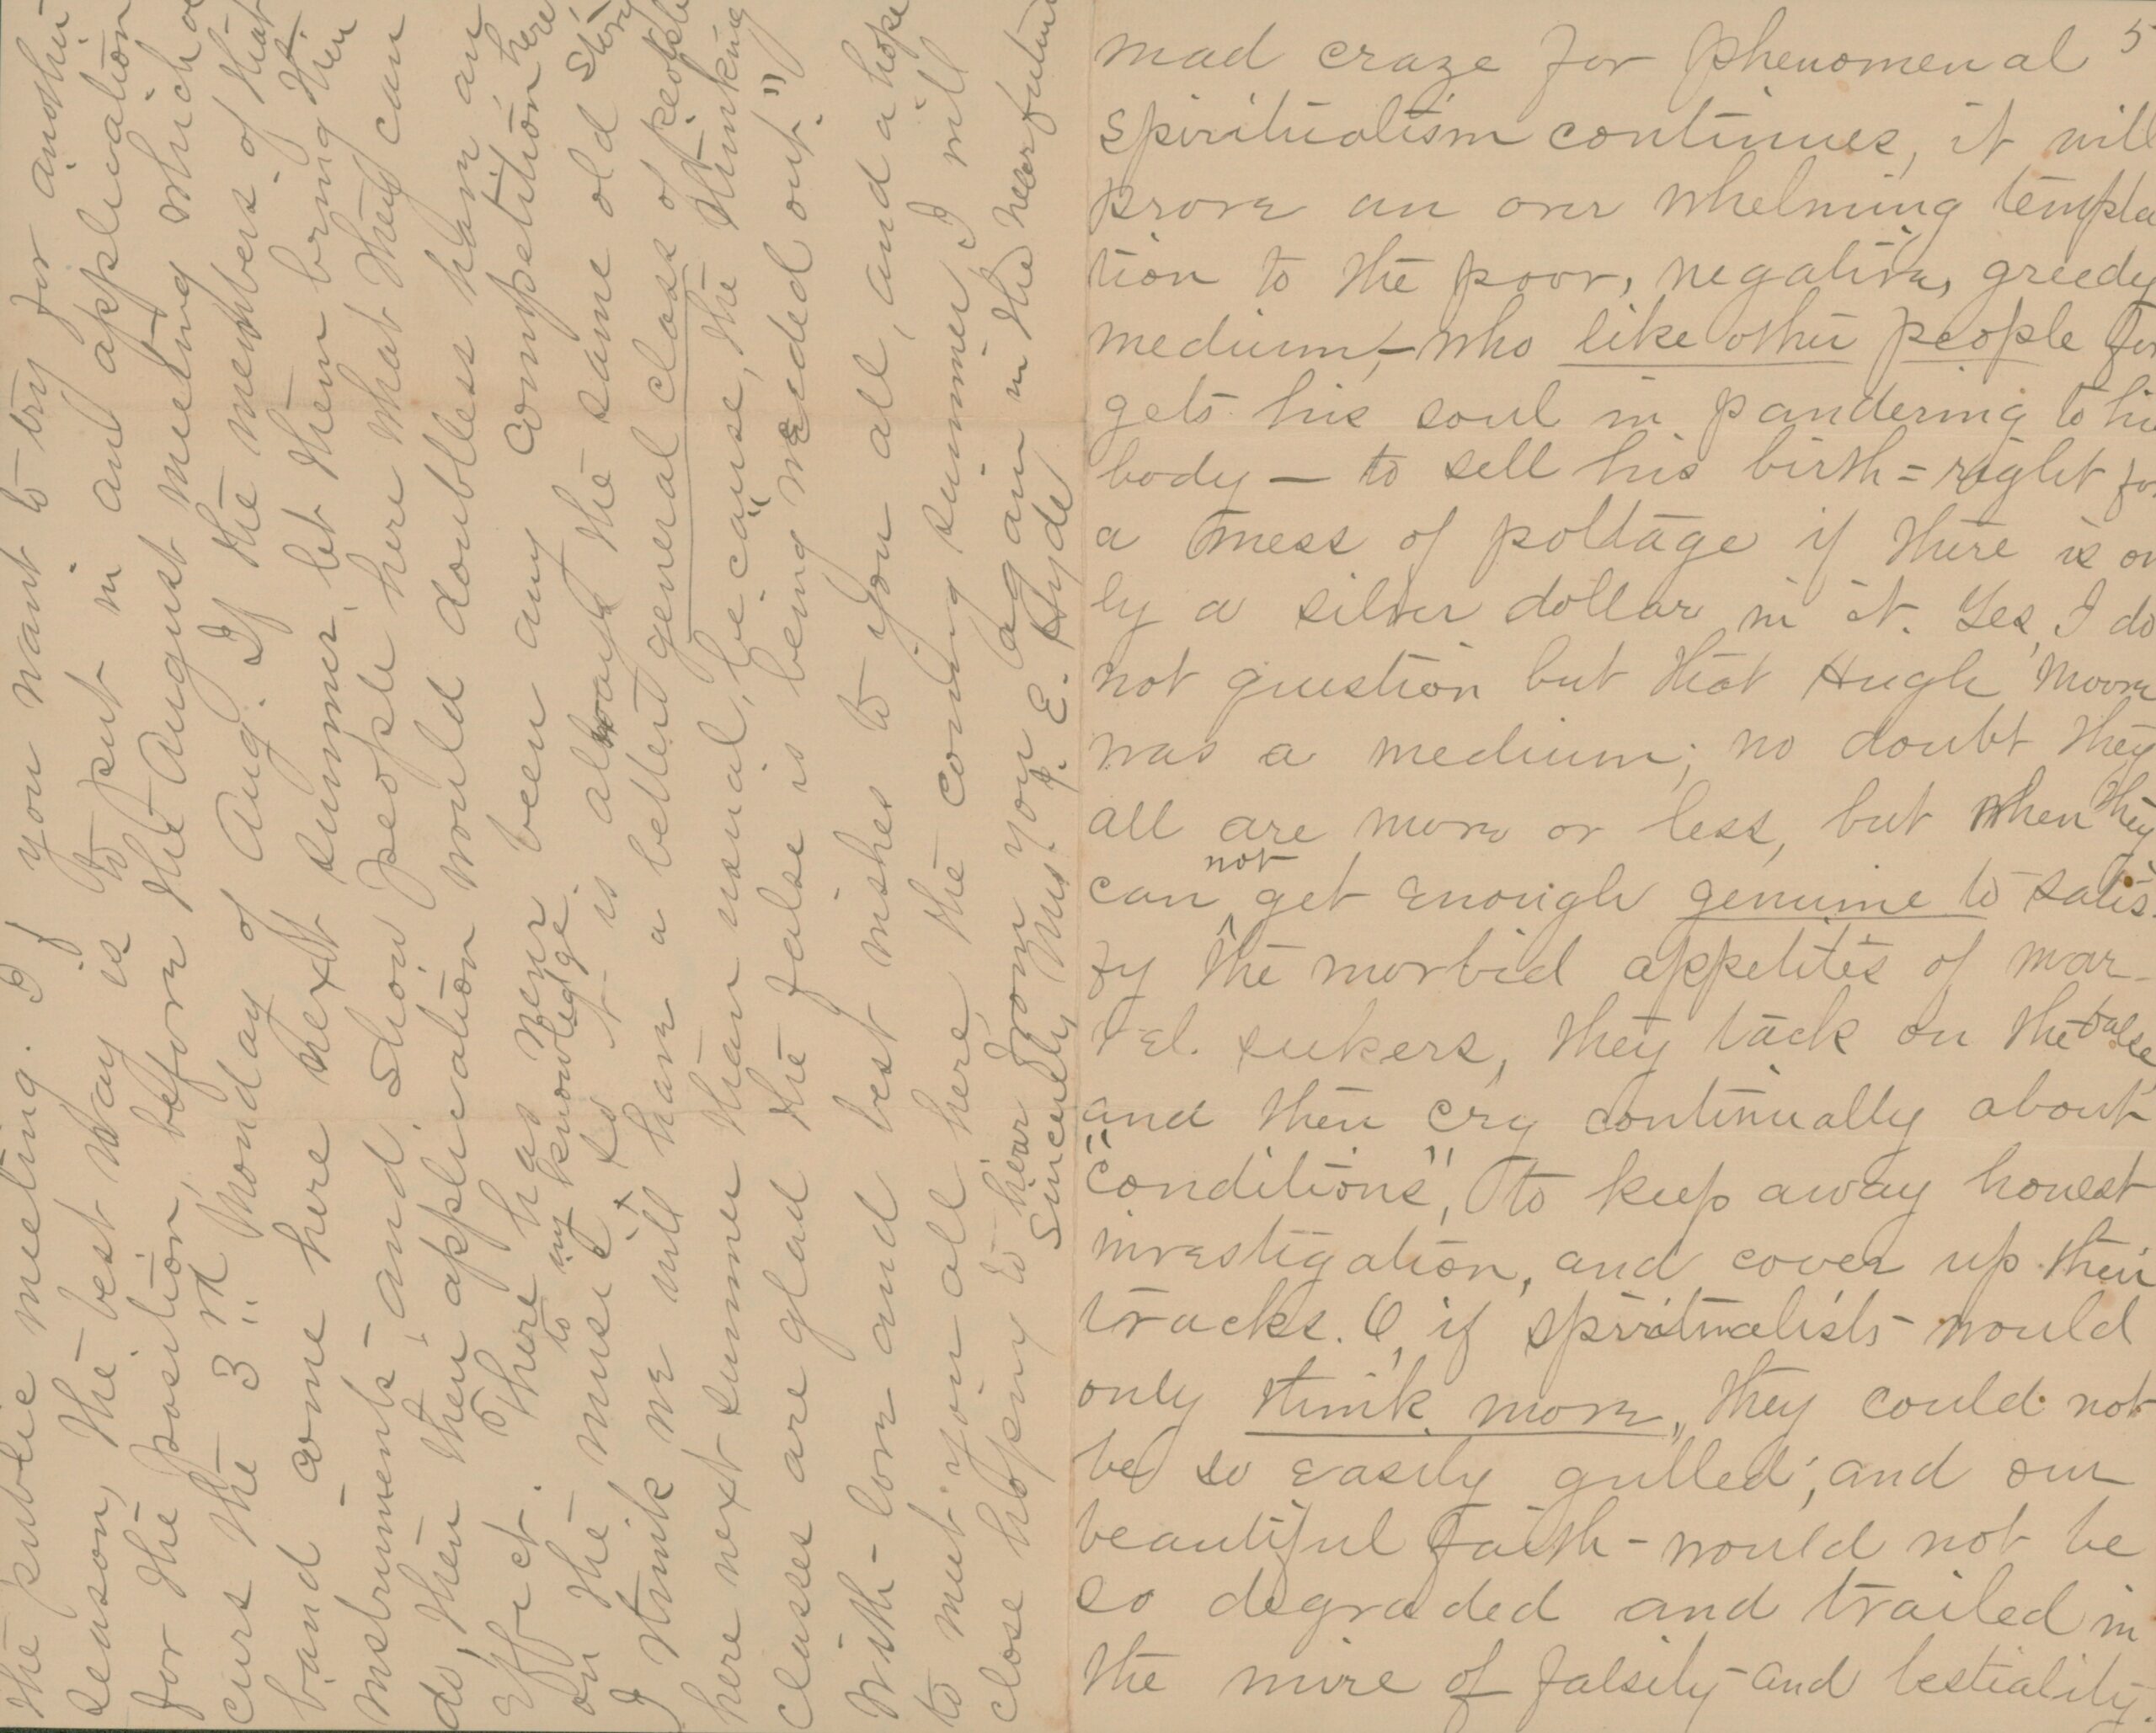 mad craze for phenomenal 5
spiritualism continues, it will
prove an over whelming tempta
tion to the poor, negative, greedy
medium, - who like other people for
gets his soul in pandering to his
body — to sell his birth = right for
a mess of poltage if there is on
ly a silver dollar in it. Yes, I do
not question but that Hugh Moore
was a medium; no doubt they
all are more or less, but when they
can not get enough genuine to satis-
fy the morbid appetites of mar-
vel seekers, they tack on the false
and then cry continually about
"conditions", to keep away honest
investigation, and cover up their
tracks. O, if spiritualists would
only think more, they could not
be so easily gulled; and our
beautiful faith - would not be
so degraded and trailed in
the mire of falsity - and bestiality.
the public meeting. If you want to try for another
season, the best way is to put in and application
for the position, before the August meeting which oc
curs the 3rd Monday of Aug. If the members of that
band come here next summer, let them bring their
instruments, and show people here what they can
do, then their application would doubtless have an
effect. There has never been any competition here
to my knowledge.
on the music, so it is always the same old story
I think we will have a better general class of people
here next summer than usual, because, the "thinking
classes are glad the false is being weeded out."
With - love and best wishes to you all, and a hope
to meet you all here, the coming summer, I will
close hoping to hear from you again in the near future
Sincerely Mrs. J. E. Hyde